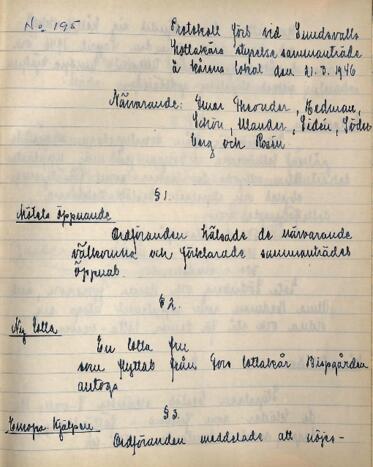 No 195
Protokoll fört vid Sundsvalls
Lottakårs styrelsesammanträde
å kårens lokal den 21.3.1946
Närvarande: Fruar Theander, Hedman,
Schön, Ulander, Lidén, Söder
berg och Rosén
§ 1.
Mötets öppnande
Ordföranden hälsade de närvarande
välkomna och förklarade sammanträdet
öppnat
§ 2.
Ny lotta
En lotta fru
som flyttat från Fors lottakår Bispgården
antogs
§ 3.
Europa hjälpen
Ordföranden meddelade att nöjes-